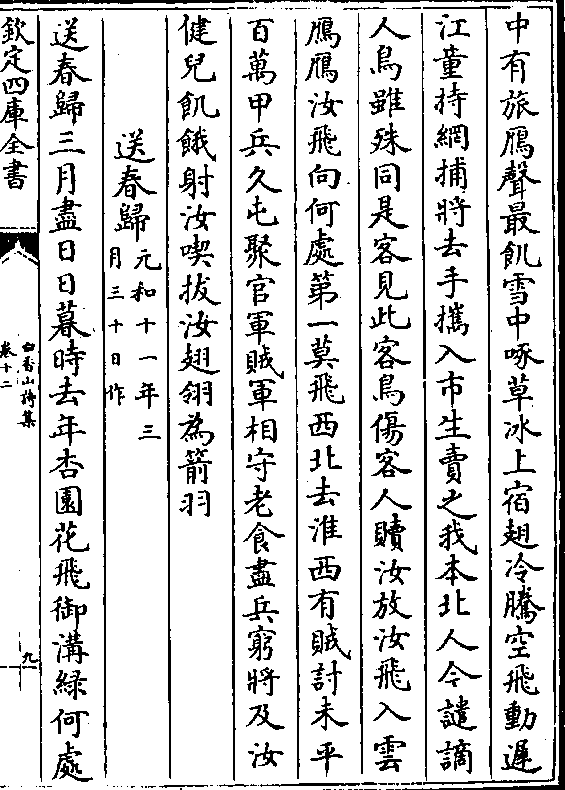 中有旅鴈聲最飢雪中啄草冰上宿翅冷騰空飛動遲
江童持網捕將去手攜入市生賣之我本北人今譴謫
人鳥雖殊同是客見此客鳥傷客人贖汝放汝飛入雲
鴈鴈汝飛向何處第一莫飛西北去淮西有賊討未平
百萬甲兵久屯聚官軍賊軍相守老食盡兵窮將及汝
健兒飢餓射汝喫拔汝翅翎為箭羽
送春歸元和十一年三
月三十日作
送春歸三月盡日日暮時去年杏園花飛御溝綠何處
欽定四庫全書
白香山詩集
卷十二
九